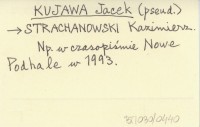 KUJAWA Jacek (pseud.)
→ STRACHANOWSKI Kazimierz.
Np. w czasopiśmie Nowe
Podhale w 1993.